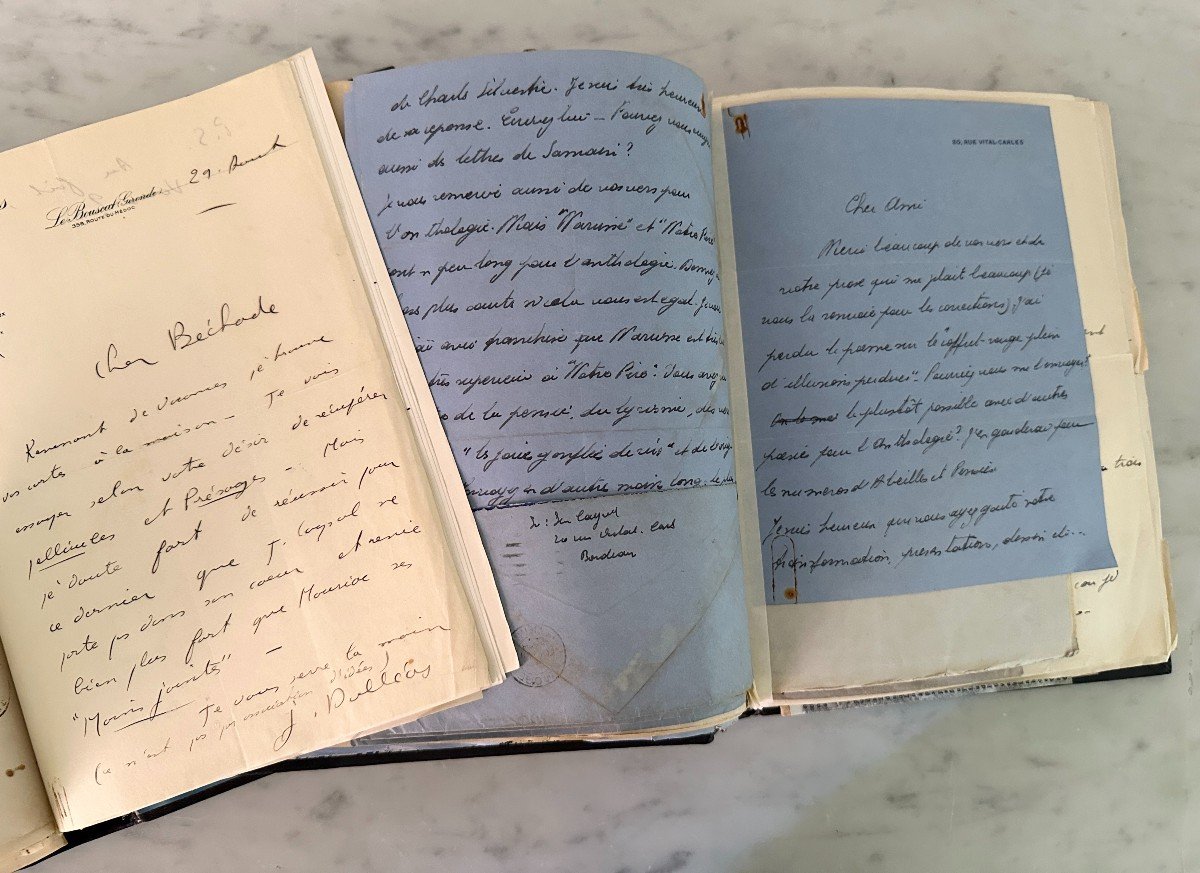 29. Aout
Le Bouscat, Gironde
358, ROUTE DU MÉDOC
Cher Béchade
Revenant de vacances je trouve
vos cartes à la maison – Je vais
essayer selon votre désir de récupérer
et Présages – Mais
je doute fort de réussir pour
ce dernier que J. Cayrol ne
porte pas dans son coeur et renie
bien plus fort que Mauriac ses
"Mains jointes" –
Je vous serre la main
(ce n'est pas par association d'idées)
J. Dalléas
de Charles Silvestre. Je suis très heureux
de sa réponse. – Pourriez vous
aussi des lettres de Samain ?
Je vous remercie aussi de vos vers pour
l'anthologie. Mais "Narcisse" et "Notre Père"
sont un peu long pour l'anthologie.
plus courts si cela vous est égal.
avec franchise que Narcisse est
très supérieur à "Notre Père". Vous avez
de la pensée, du lyrisme, des
gonflée de
d'autre moins long,
Jean Cayrol
20 rue Vital. Carles
Bordeaux
20, RUE VITAL-CARLES
Cher Ami
Merci beaucoup de vos vers et de
votre prose qui me plait beaucoup (je
vous la renvoie pour les corrections) J'ai
perdu le poème sur le "coffret rouge plein
d'illusions perdues". Pourriez vous me l'envoyer?
le plustôt possible avec d'autres
poésie pour l'Anthologie? J'en garderais pour
les numéros d'Abeilles et Pensées
Je suis heureux que vous ayez gouté notre
transformation, présentation, dessin etc...
trois